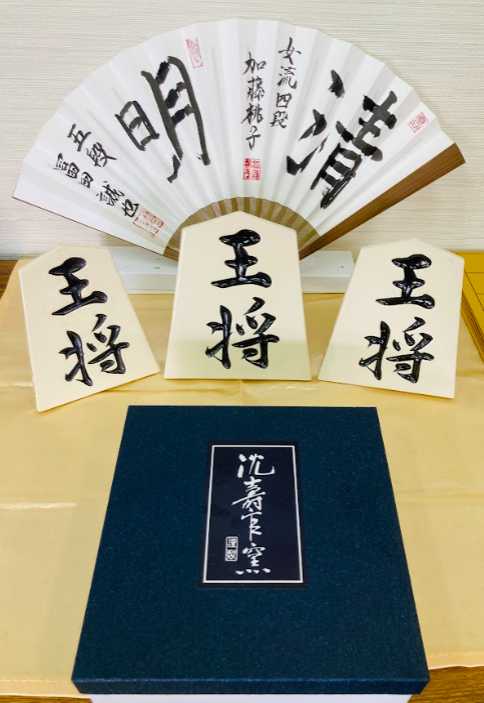 清
女流四段
加藤桃子
明
五段
冨田誠也
王将
王将
王将
沈壽官窯
謹製